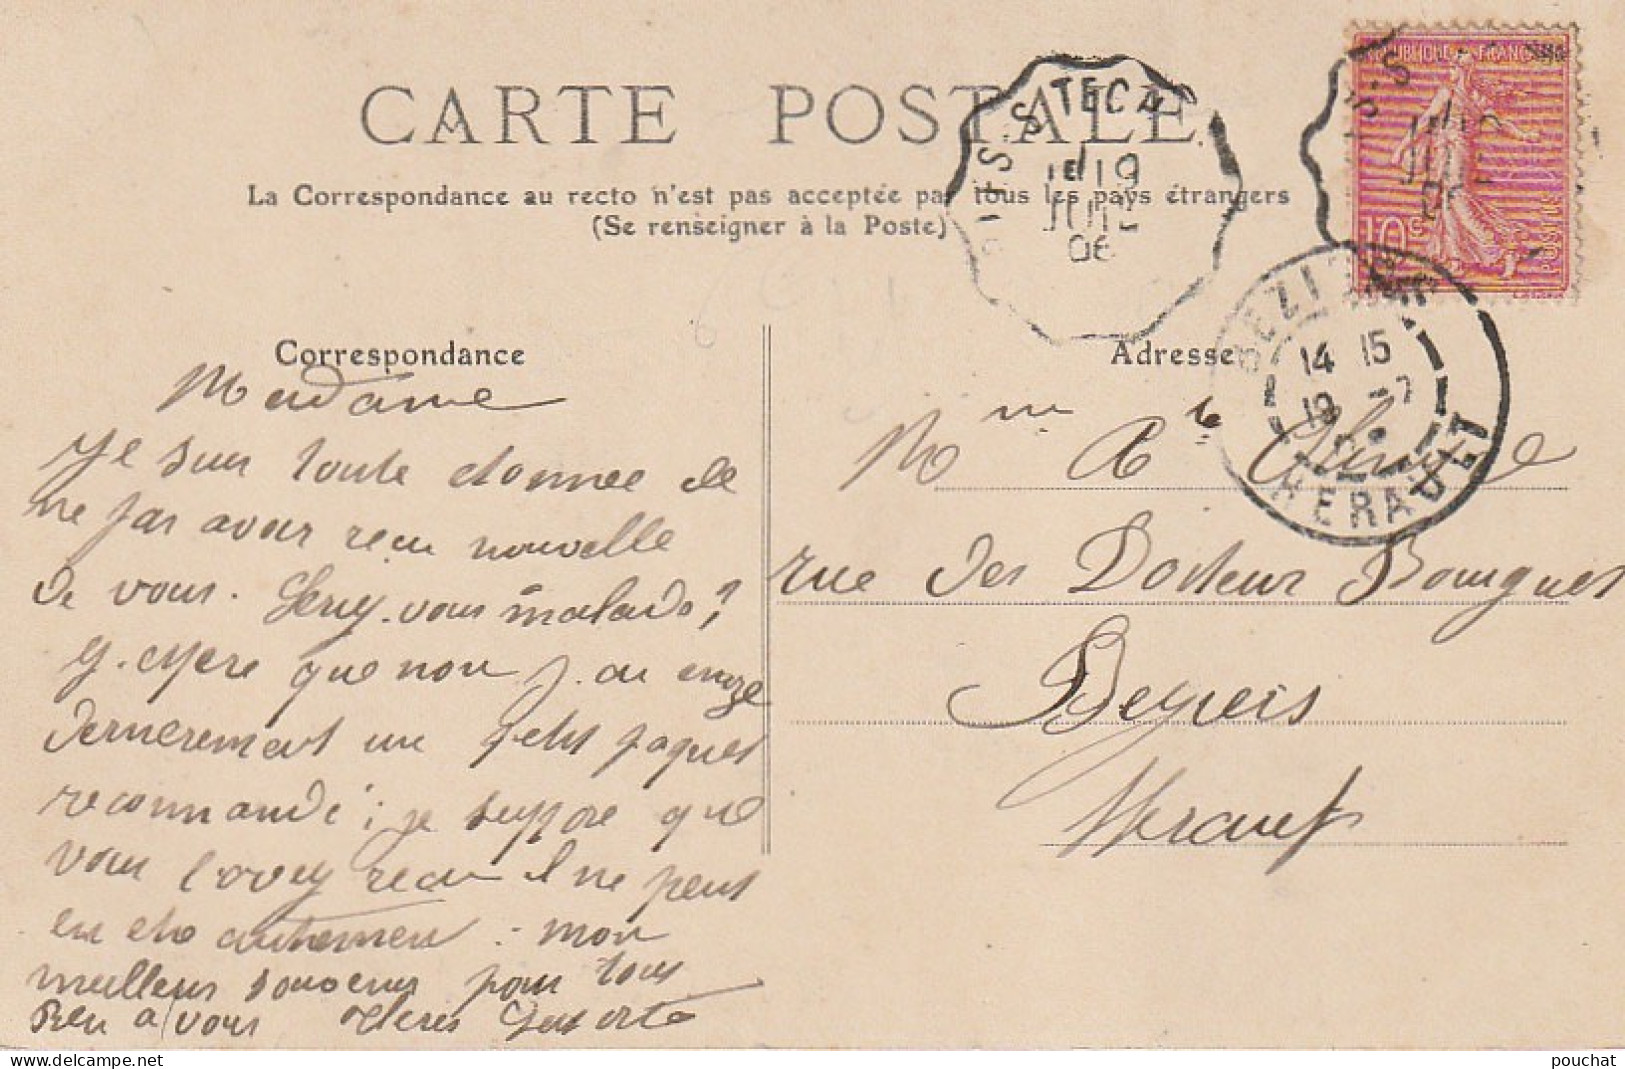 CARTE POSTALE
La Correspondance au recto n'est pas acceptée par tous les pays étrangers
(Se renseigner à la Poste)
S TECH
1E/19
JUIL
06
REPUBLIQUE FRANCAISE
10c
POSTES
Correspondance
Adresse
BEZIERS
14 15
19 -7
HERAULT
Madame
Je suis toute etonnee de
ne pas avoir recu nouvelle
de vous. Seriez-vous malade?
J. espere que non j. ai envoye
dernierement un petit paquet
recommandé ; je suppose que
vous l'avez recu il ne peut
en etre autrement : mon
meilleur souvenir pour tous
Bien a vous
Mme A
rue des Docteur Bourguet
Beziers
Herault
pouchat